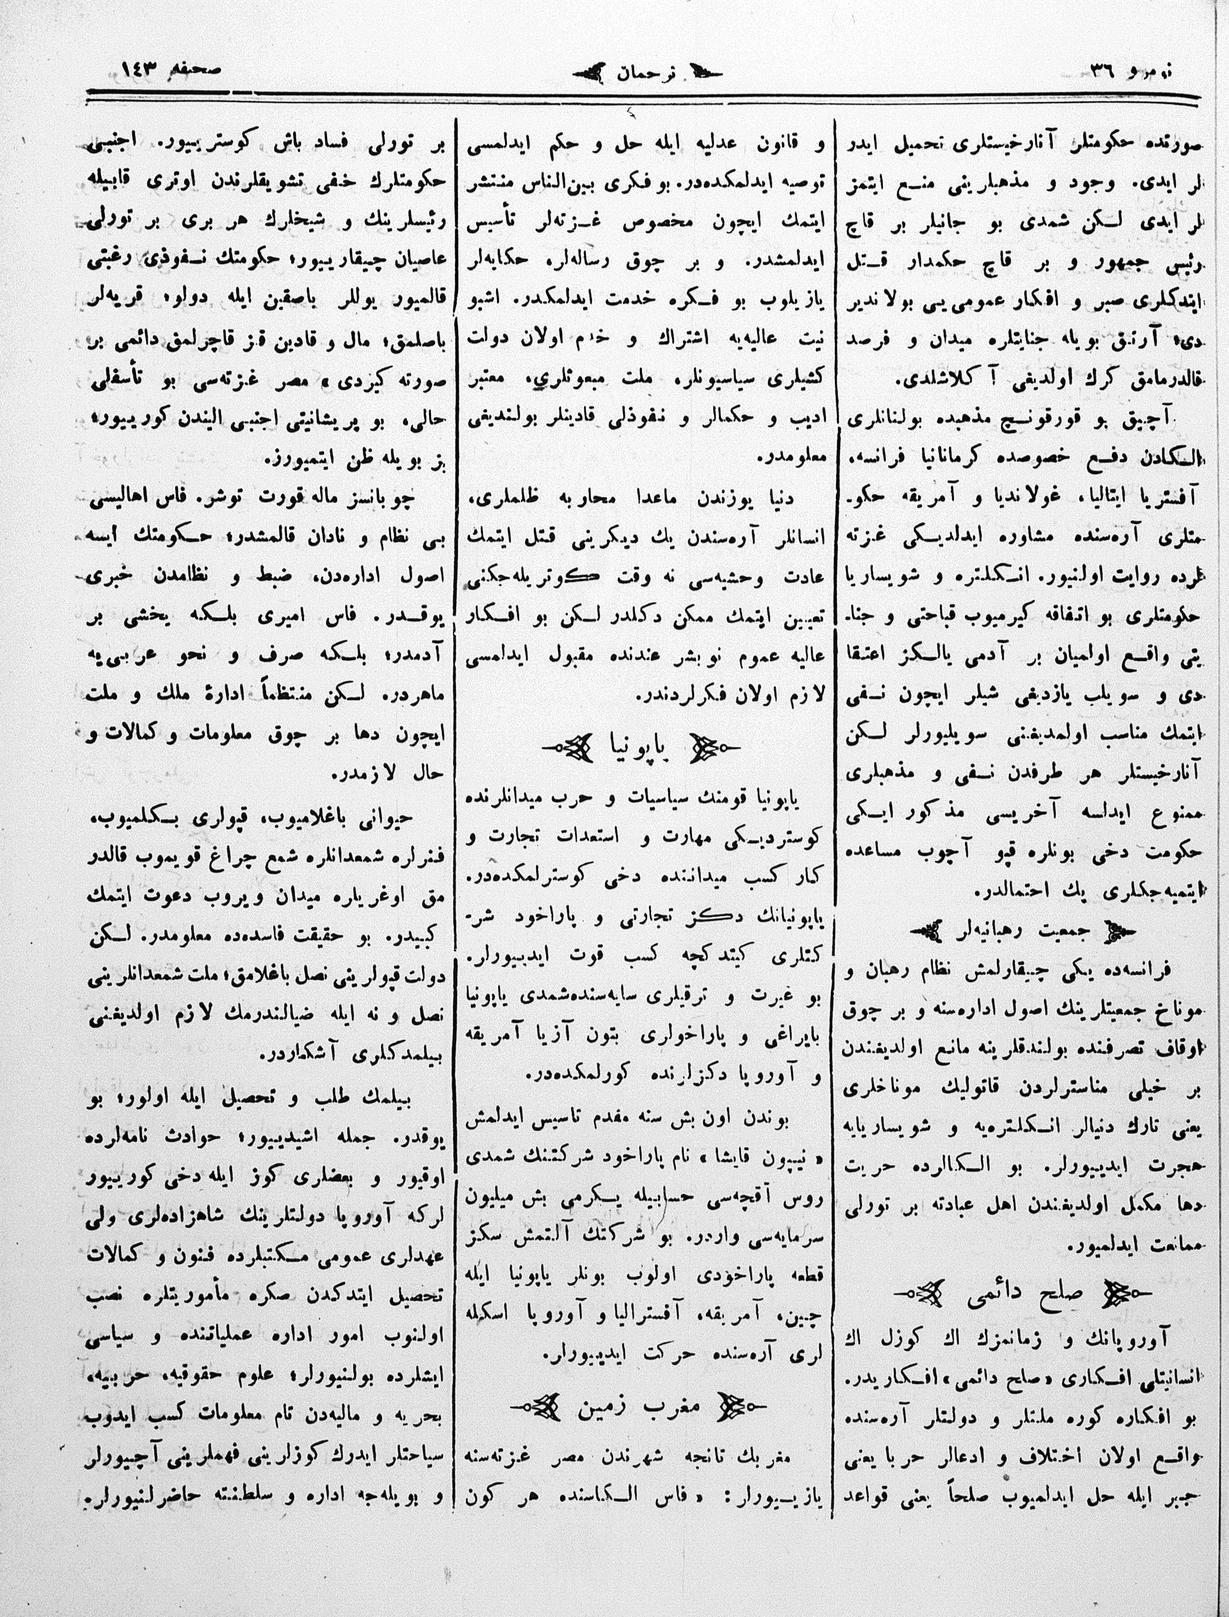 نومرو ٣٦
ترجمان
صحيفه ١٤٣
صورتده حكومتلر آنارخيستلرى تحميل ايدر
لر ايدى. وجود و مذهبلرينى منع ايتمز
لر ايدى لكن شمدى بو جانيلر بر قاچ
رئيس جمهور و بر قاچ حكمدار قتل
ايتدكلرى صبر و افكار عمومى‌يى بولاندير
دى؛ آرتق بويله جنايتلره ميدان و فرصد
قالدرمامق كرك اولديغى آكلاشلدى.
آچيق بو قورقونچ مذهبده بولنانلرى
الكادن دفع خصوصده كرمانانيا فرانسه،
آفستريا ايتاليا، غولانديا و آمريقه حكو-
متلرى آره‌سنده مشاوره ايدلديكى غزته
لرده روايت اولنيور. انكلتره و شويساريا
حكومتلرى بو اتفاقه كيرميوب قباحتى و جنا-
يتى واقع اولميان بر آدمى يالكز اعتقا
دى و سويلب يازديغى شيلر ايچون نفى
ايتمك مناسب اولمديغنى سويليورلر لكن
آنارخيستلر هر طرفدن نفى و مذهبلرى
ممنوع ايدلسه آخريسى مذكور ايكى
حكومت دخى بونلره قپو آچوب مساعده
ايتميه‌جكلرى يك احتمالدر.
جمعيت رهبانيه‌لر
فرانسه‌ده يكى چيقارلمش نظام رهبان و
موناخ جمعيتلرينك اصول اداره‌سنه و بر چوق
اوقاف تصرفنده بولندقلرينه مانع اولديغندن
بر خيلى مناسترلردن قاتوليك موناخلرى
يعنى تارك دنيالر انكلتره‌يه و شويساريايه
هجرت ايدييورلر. بو الكالرده حريت
دها مكمل اولديغندن اهل عبادته بر تورلى
ممانعت ايدلميور.
صلح دائمى
آوروپانك و زمانمزك اك كوزل اك
انسانيتلى افكارى «صلح دائمى» افكاريدر.
بو افكاره كوره ملتلر و دولتلر آره‌سنده
واقع اولان اختلاف و ادعالر حربا يعنى
جبر ايله حل ايدلميوب صلحاً يعنى قواعد
و قانون عدليه ايله حل و حكم ايدلمسى
توصيه ايدلمكده‌در. بو فكرى بين‌الناس منتشر
ايتمك ايچون مخصوص غزته‌لر تأسيس
ايدلمشدر. و بر چوق رساله‌لر، حكايه‌لر
يازيلوب بو فكره خدمت ايدلمكدر. اشبو
نيت عاليه‌يه اشتراك و خدم اولان دولت
كشيلرى سياسيونلر، ملت مبعوثلرى، معتبر
اديب و حكمالر و نفوذلى قادينلر بولنديغى
معلومدر.
دنيا يوزندن ماعدا محاربه ظلملرى،
انسانلر آره‌سندن يك ديكرينى قتل ايتمك
عادت وحشيه‌سى نه وقت كوتريله‌جكنى
تعيين ايتمك ممكن دكلدر لكن بو افكار
عاليه عموم نوبشر عندنده مقبول ايدلمسى
لازم اولان فكرلردندر.
ياپونيا
ياپونيا قومنك سياسيات و حرب ميدانلرنده
كوسترديكى مهارت و استعدات تجارت و
كار كسب ميداننده دخى كوسترلمكده‌در.
ياپونيانك دكز تجارتى و پاراخود شر-
كتلرى كيتدكچه كسب قوت ايدييورلر.
بو غيرت و ترقيلرى سايه‌سنده شمدى ياپونيا
بايراغى و پاراخولرى بتون آزيا آمريقه
و آوروپا دكزلرنده كورلمكده‌در.
بوندن اون بش سنه مقدم تاسيس ايدلمش
«نيپون قايشا» نام پاراخود شركتنك شمدى
روس آقچه‌سى حسابيله يكرمى بش ميليون
سرمايه‌سى واردر. بو شركتك آلتمش سكز
قطعه پاراخودى اولوب بونلر ياپونيا ايله
چين، آمريقه، آفستراليا و آوروپا اسكيله
لرى آره‌سنده حركت ايدييورلر.
مغرب زمين
مغربك تانجه شهرندن مصر غزته‌سنه
يازييورلر: «فاس الكاسنده هر كون
بر تورلى فساد باش كوستريور. اجنبى
حكومتلرك خفى تشويقلرندن اوترى قابيله
رئيسلرينك و شيخلرك هر برى بر تورلى
عاصيان چيقارييور؛ حكومتك نفوذى رغبتى
قالميور يوللر باصقين ايله دولو؛ قريه‌لر
باصلمق؛ مال و قادين قز قاچرلمق دائمى بر
صورته كيردى» مصر غزته‌سى بو تأسفلى
حالى، بو پريشانيتى اجنبى اليندن كورييور؛
بز بويله ظن ايتميورز.
چوبانسز ماله قورت توشر. فاس اهاليسى
بى نظام و نادان قالمشدر؛ حكومتك ايسه
اصول اداره‌دن، ضبط و نظامدن خبرى
يوقدر. فاس اميرى بلكه يخشى بر
آدمدر؛ بلكه صرف و نحو عربى‌يه
ماهردر. لكن منتظماً ادارۀ ملك و ملت
ايچون دها بر چوق معلومات و كمالات و
حال لازمدر.
حيوانى باغلاميوب، قپولرى بكلميوب،
فنرلره شمعدانلره شمع چراغ قويموب قالدر
مق اوغرياره ميدان ويروب دعوت ايتمك
كبيدر. بو حقيقت فاسده‌ده معلومدر. لكن
دولت قپولرينى نصل باغلامق؛ ملت شمعدانلرينى
نصل و نه ايله ضيالندرمك لازم اولديغنى
بيلمدكلرى آشكاردر.
بيلمك طلب و تحصيل ايله اولور؛ بو
يوقدر. جمله اشيدييور؛ حوادث نامه‌لرده
اوقيور و بعضلرى كوز ايله دخى كورييور
لركه آوروپا دولتلرينك شاهزاده‌لرى ولى
عهدلرى عمومى مكتبلرده فنون و كمالات
تحصيل ايتدكدن صكره مأموريتلره نصب
اولنوب امور اداره عملياتنده و سياسى
ايشلرده بولنيورلر؛ علوم حقوقيه، حربيه،
بحريه و ماليه‌دن تام معلومات كسب ايدوب
سياحتلر ايدرك كوزلرينى فهملرينى آچيورلر
و بويله‌جه اداره و سلطنته حاضرلنيورلر.